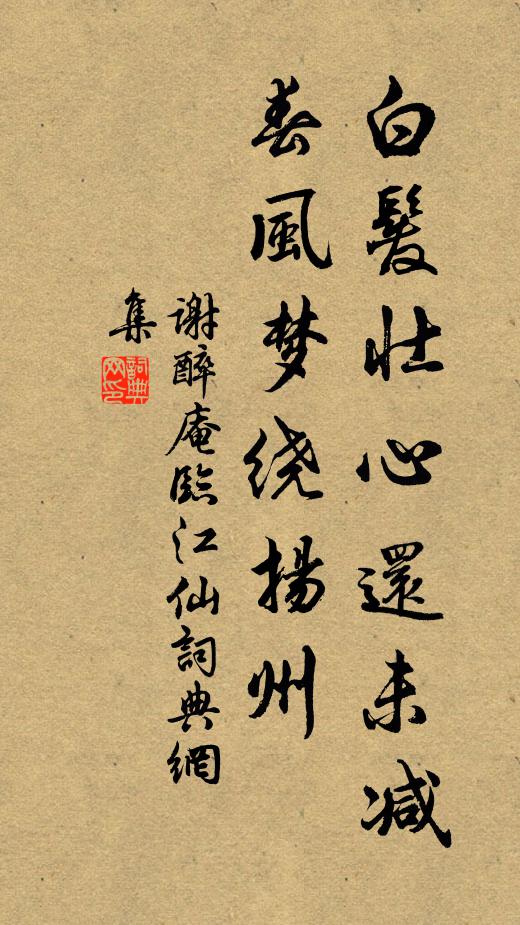 白髮壯心還未减
春風梦绕揚州
謝醉庵臨江仙詞典網
集
詞典网印